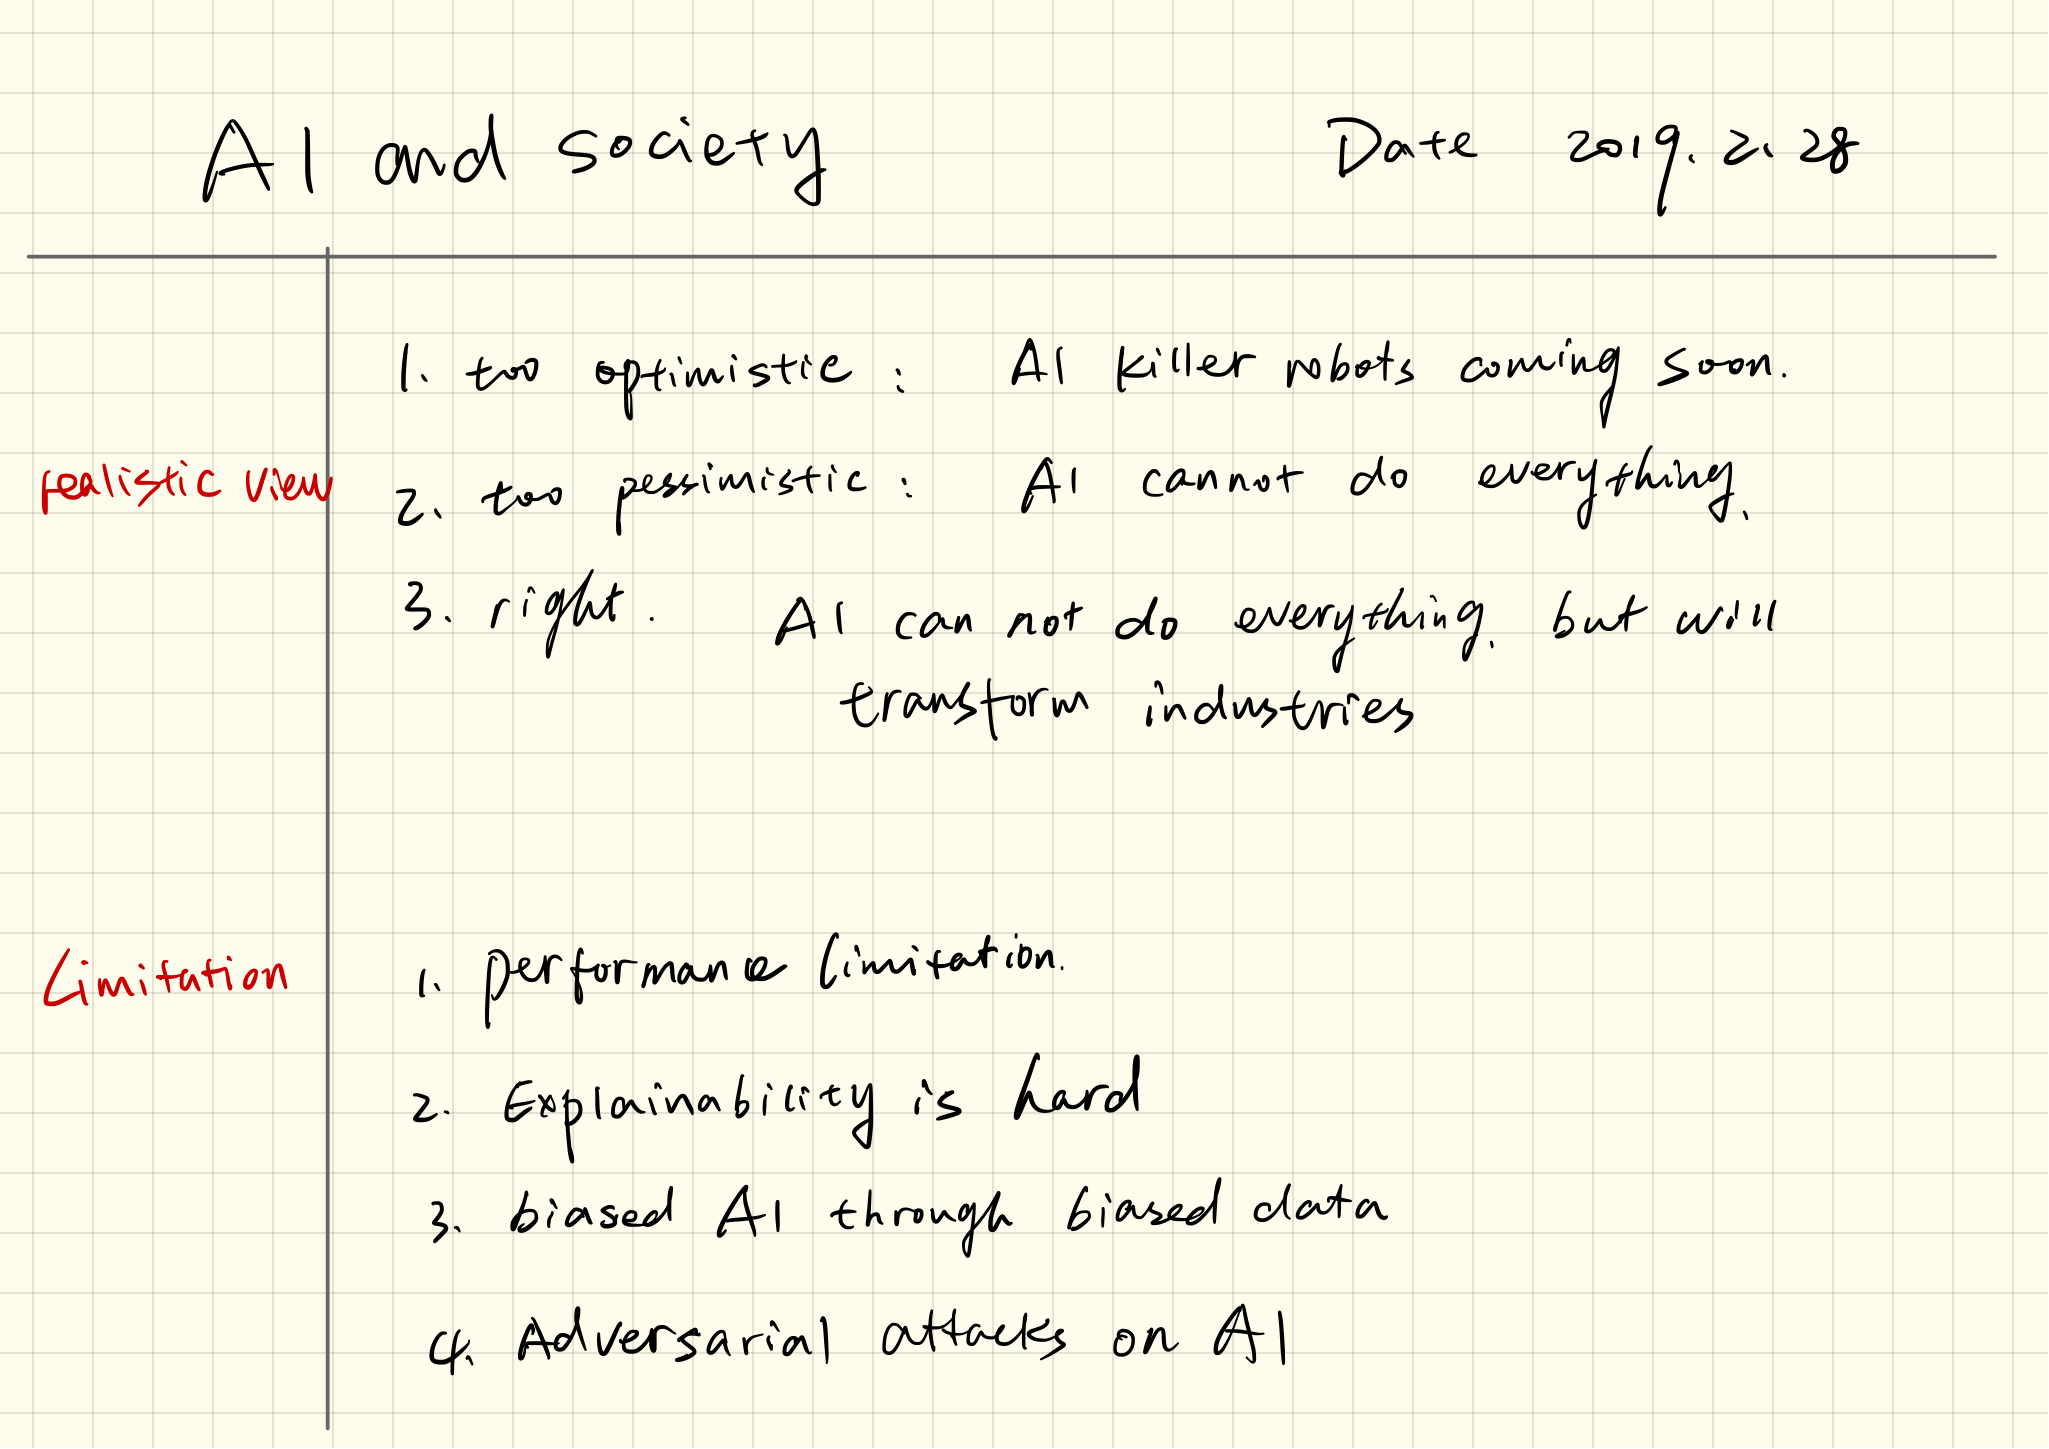 AI and society Date 2019.2.28
1. too optimistic : AI killer robots coming soon.
realistic view 2. too pessimistic : AI cannot do everything.
3. right. AI can not do everything. but will
transform industries
Limitation 1. performance limitation.
2. Explainability is hard
3. biased AI through biased data
4. Adversarial attacks on AI